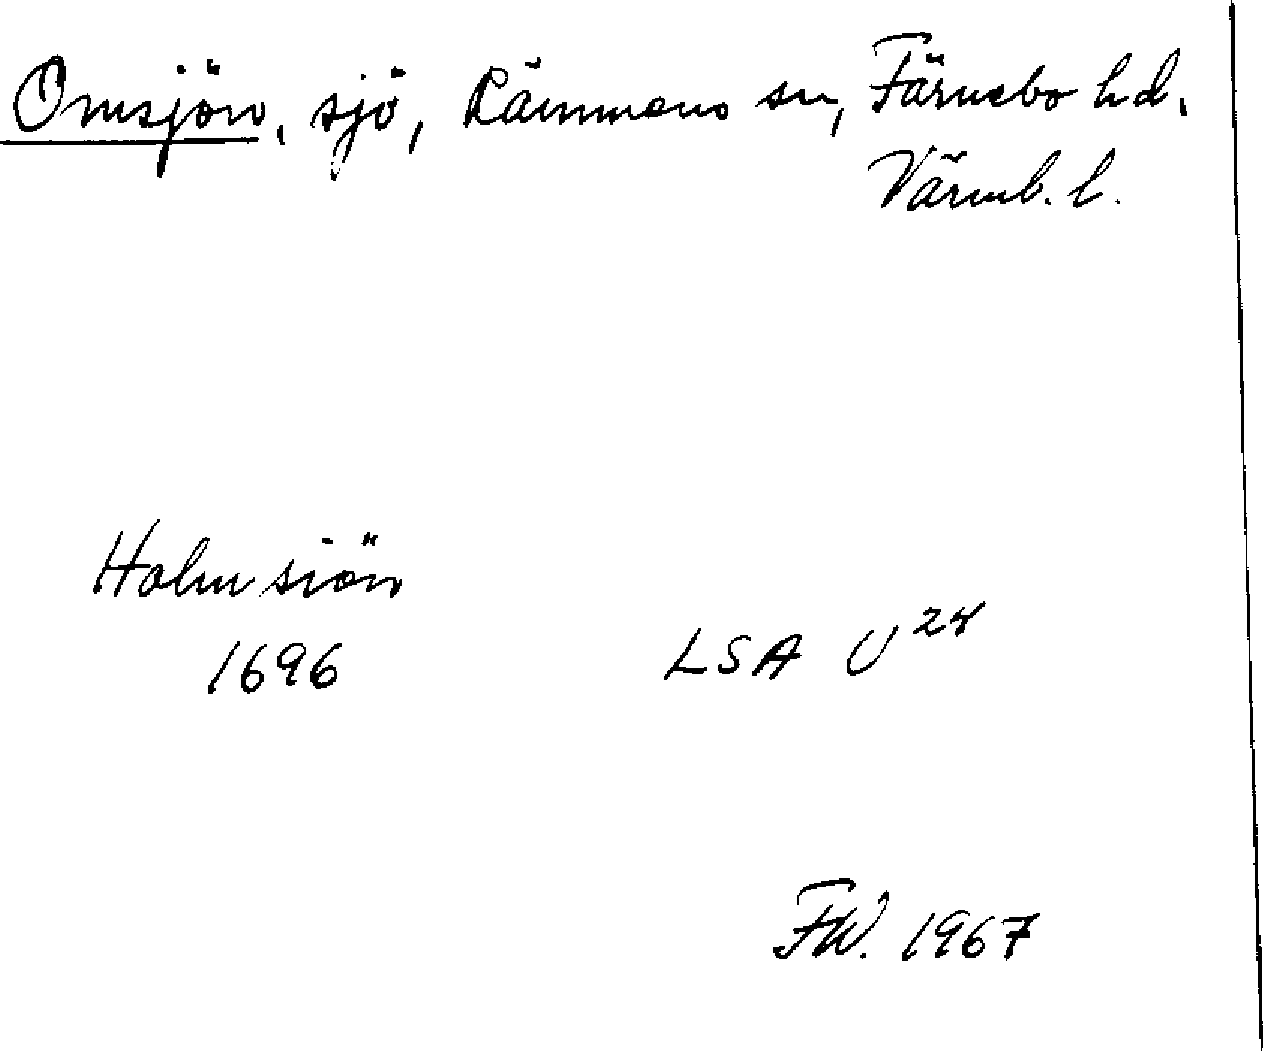 Omsjön, sjö, Rämmens sn, Färnebo hd,
Värml. l.
Holmsiön
1696
LSA U 28
FW. 1967